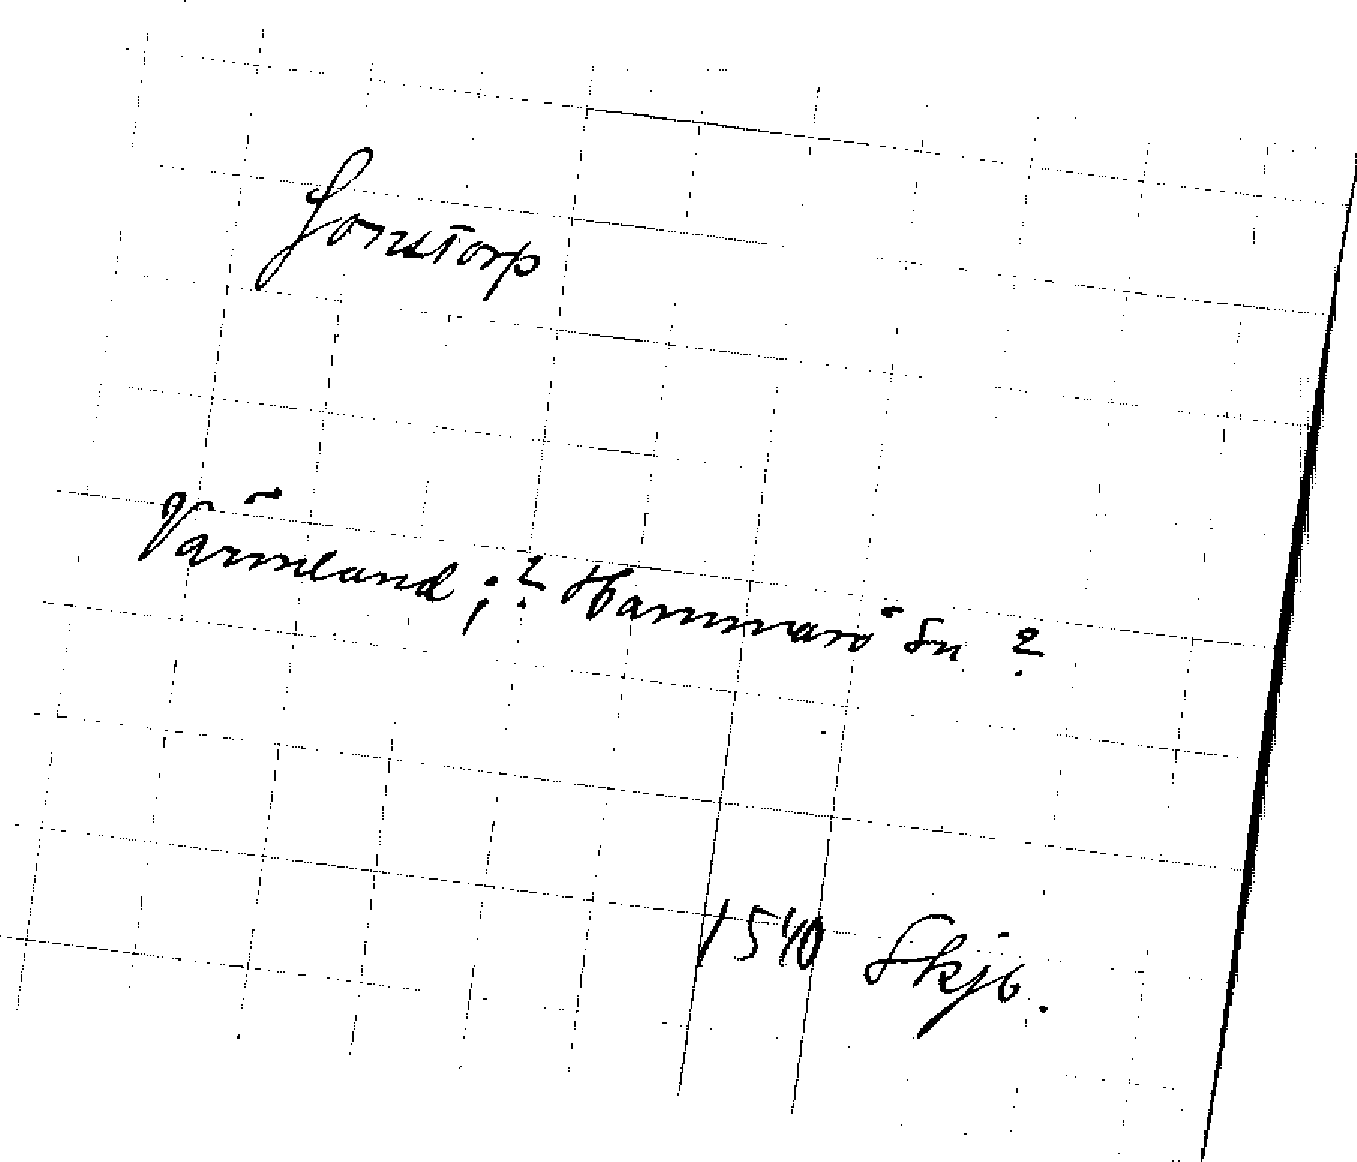 Jonstorp
Värmland; ? Hammarö Sn ?
1540 Skjö.